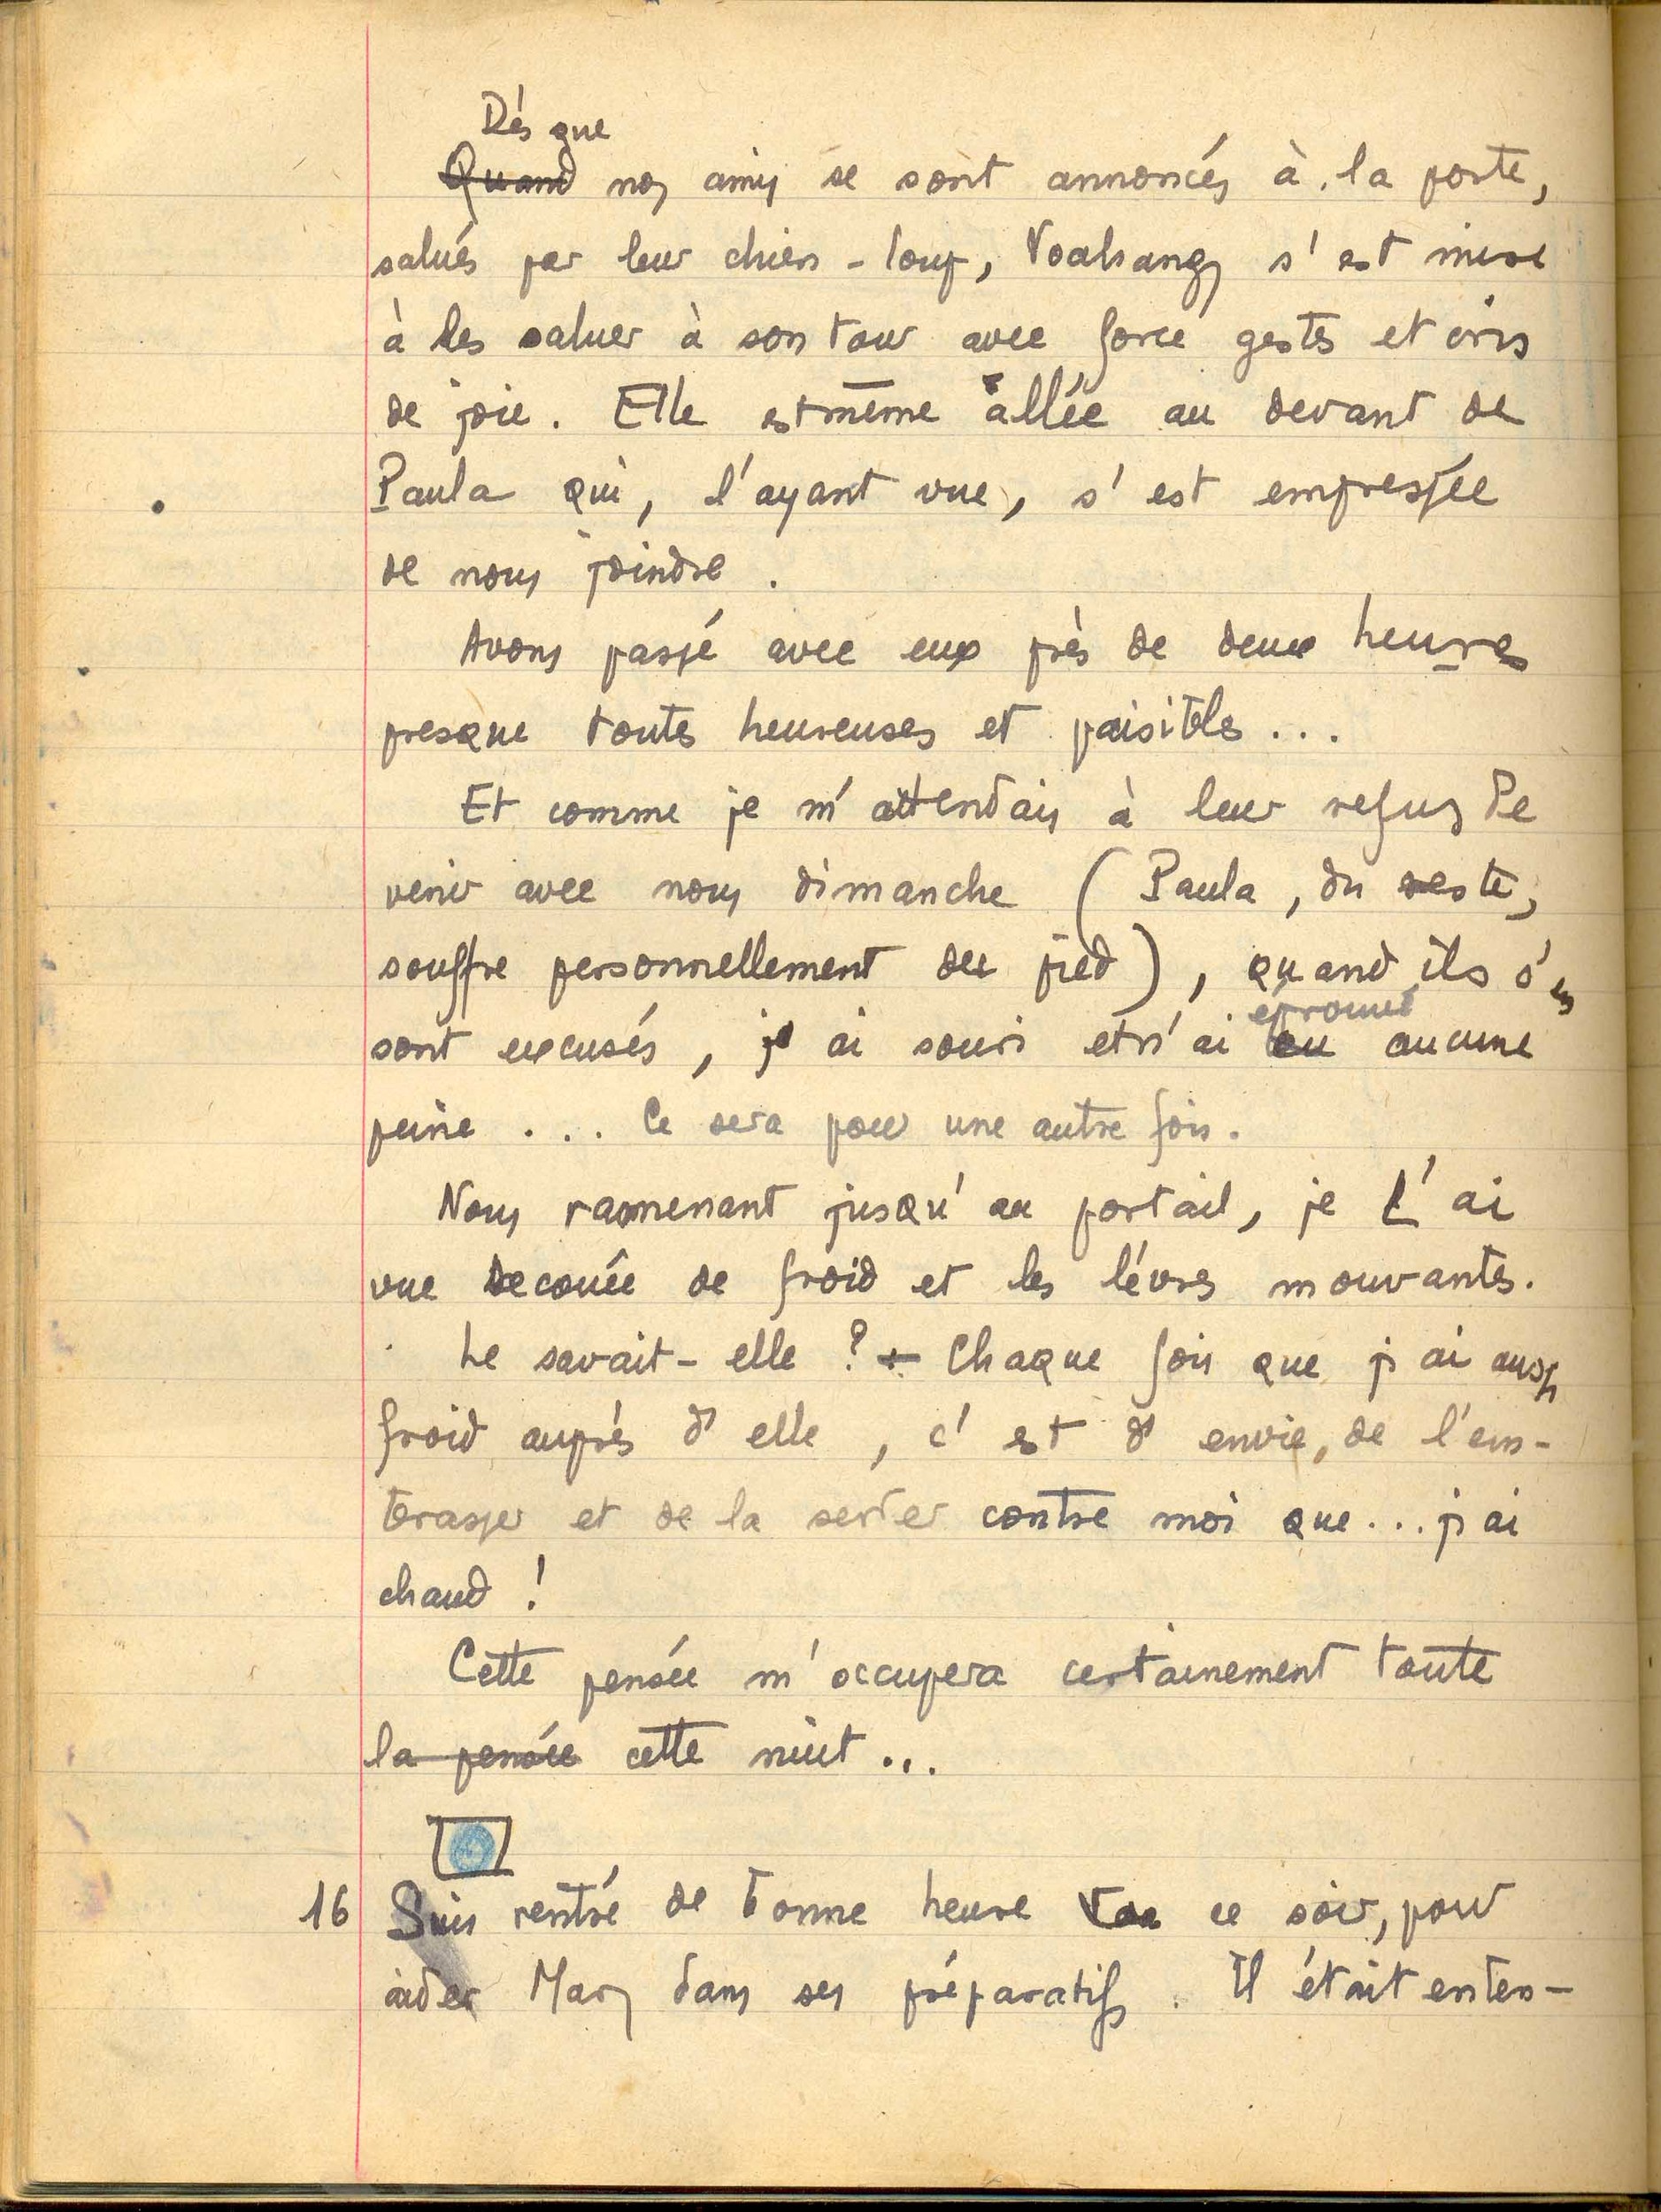 Dés que
Quand nos amis se sont annoncés à la porte,
salués par leur chien-loup, Voahangy s'est mise
à les saluer à son tour avec force gestes et cris
de joie. Elle est même allée au devant de
Paula qui, l'ayant vue, s'est empressée
de nous joindre.
Avons passé avec eux près de deux heures
presque toutes heureuses et paisibles...
Et comme je m'attendais à leur refus de
venir avec nous dimanche (Paula, du reste,
souffre personnellement du pied), quand ils s'en
éprouvé
sont excusés, j'ai souri et n'ai eu aucune
peine ... Ce sera pour une autre fois.
Nous ramenant jusqu'au portail, je L'ai
vue secouée de froid et les lèvres mouvantes.
Le savait-elle ? Chaque fois que j'ai aussi
froid auprès d'elle, c'est d'envie, de l'em-
brasser et de la serrer contre moi que... j'ai
chaud !
Cette pensée m'occupera certainement toute
la pensée cette nuit...
16 Suis rentré de bonne heure ce soir, pour
aider Mary dans ses préparatifs. Il était enten-